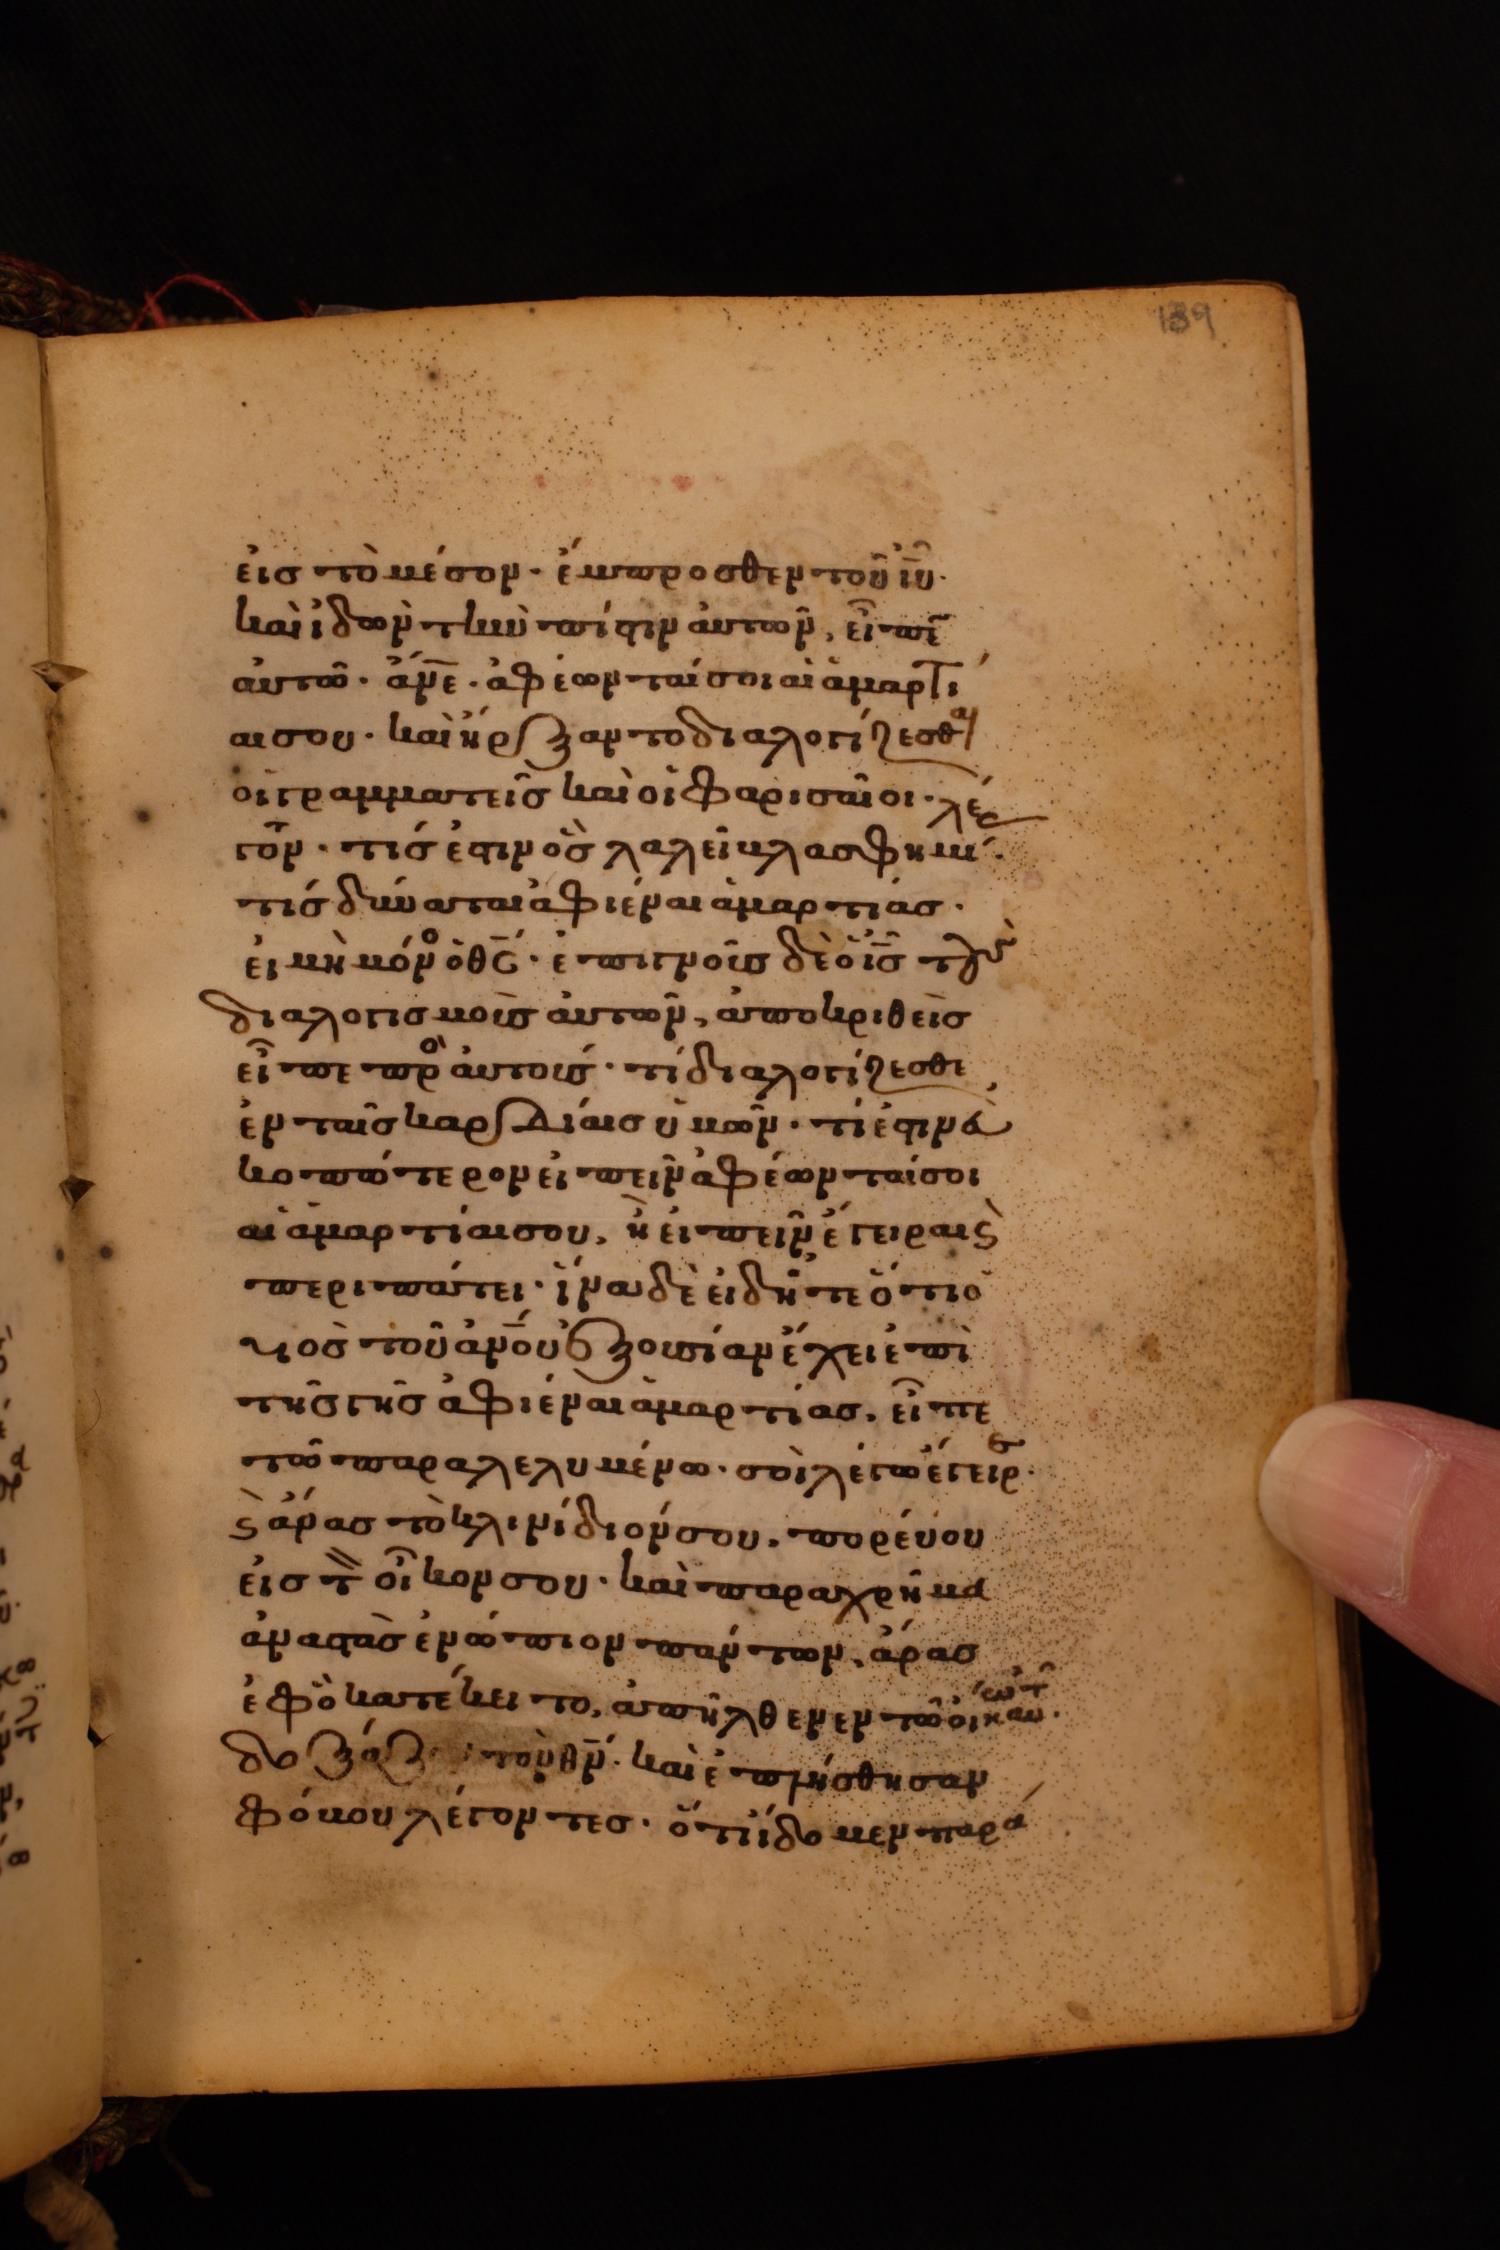 139
εἰς τὸ μέσον· ἔμπροσθεν τοῦ ἰῦ·
καὶ ἰδὼν τὴν πίστιν αὐτῶν, εἶπε
αὐτῶ· ἄνε· ἀφέωνταί σοι αἱ ἁμαρτί
αι σου· καὶ ἤρξαντο διαλογίζεσθαι
οἱ γραμματεῖς καὶ οἱ φαρισαῖοι· λέ
γοντ· τίς ἐστιν ὃς λαλεῖ βλασφημί·
τίς δύναται ἀφιέναι ἁμαρτίας·
εἰ μὴ μόνο ὁ θς· ἐπιγνοῦς δὲ ὁ ἰς τοὺς
διαλογισμοὺς αὐτῶν, ἀποκριθεὶς
εἶπε πρὸ αὐτούς· τί διαλογίζεσθε
ἐν ταῖς καρδίαις ὑμῶν· τί ἐστιν εὐ
κοπώτερον εἰπεῖν ἀφέωνταί σοι
αἱ ἁμαρτίαι σου, ἢ εἰπεῖν ἔγειραι ϗ
περιπάτει· ἵνα δὲ εἰδῆτε ὅτι ὁ
υἱος τοῦ ἀνου ἐξουσίαν ἔχει ἐπὶ
τῆς γῆς ἀφιέναι ἁμαρτίας, εἶπε
τῶ παραλελυμένω· σοὶ λέγω ἔγειρε·
ϗ ἄρας τὸ κλινίδιόν σου, πορεύου
εἰς τὸν οἶκον σου· καὶ παραχρῆμα
ἀναστὰς ἐνώπιον πάντων, ἄρας
ἐφ ὃ κατέκειτο, ἀπῆλθεν εν τῶ οἴκω αὐτ·
δοξάζ τὸν θν· καὶ ἐπλήσθησαν
φόβου λέγοντες· ὅτι ἴδομεν παρά